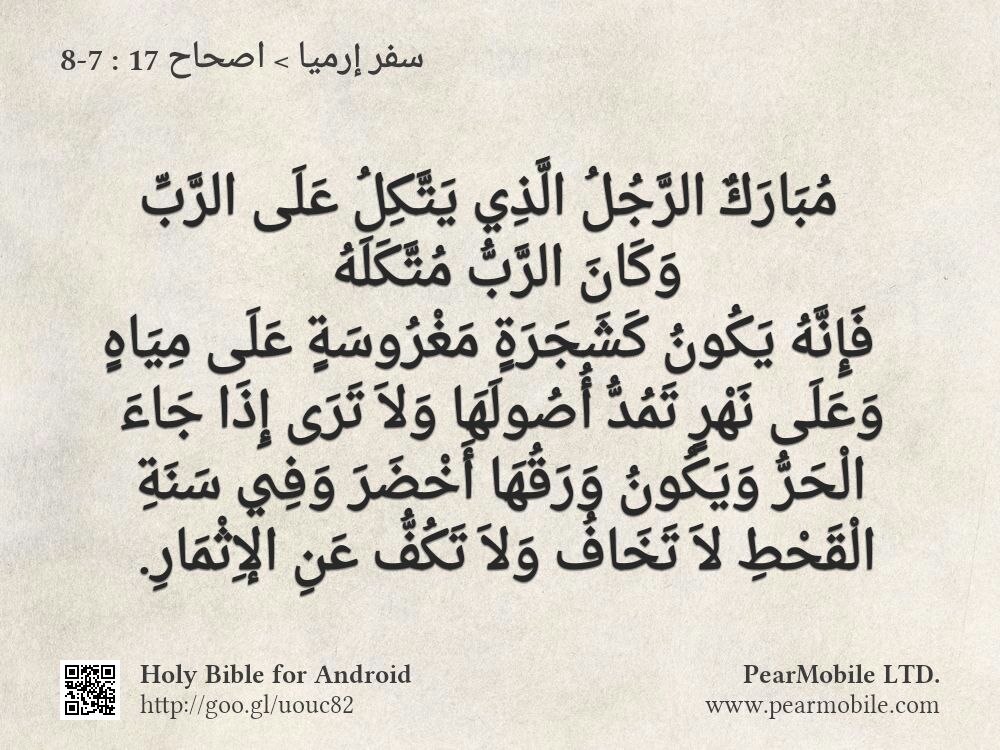 سفر إرميا > اصحاح 17 : 7-8
مُبَارَكٌ الرَّجُلُ الَّذِي يَتَّكِلُ عَلَى الرَّبِّ
وَكَانَ الرَّبُّ مُتَّكَلَهُ
فَإِنَّهُ يَكُونُ كَشَجَرَةٍ مَغْرُوسَةٍ عَلَى مِيَاهٍ
وَعَلَى نَهْرٍ تَمُدُّ أُصُولَهَا وَلاَ تَرَى إِذَا جَاءَ
الْحَرُّ وَيَكُونُ وَرَقُهَا أَخْضَرَ وَفِي سَنَةِ
الْقَحْطِ لاَ تَخَافُ وَلاَ تَكُفُّ عَنِ الإِثْمَارِ.
Holy Bible for Android
http://goo.gl/uouc82
PearMobile LTD.
www.pearmobile.com